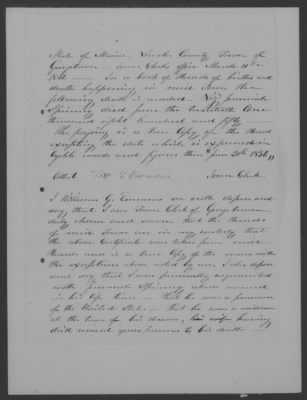 State of Maine, Lincoln County Town of
Georgetown Town Clerk's office March 11th
1851 In a book of Records of births and
deaths happening in said Town the
following death is recorded
Spinney died June the twentieth One
thousand eight hundred and fifty
The foregoing is a true Copy of the Record
excepting the date which is expressed in
words and figures thus June 20th 1850
Attest Town Clerk
I William G. Emmons on oath depose and
say that I am Town Clerk of Georgetown
duly chosen and sworn that the Records
of said Town are in my custody that
the above Certificate was taken from said
Records and is a true Copy of the same with
the exception above noted by me, I also depose
and say that I was personally acquainted
with Spinney above named
in his life time that he was a pensioner
of the United States that he was a widower
at the time of his decease, his wife having
died several years previous to his death